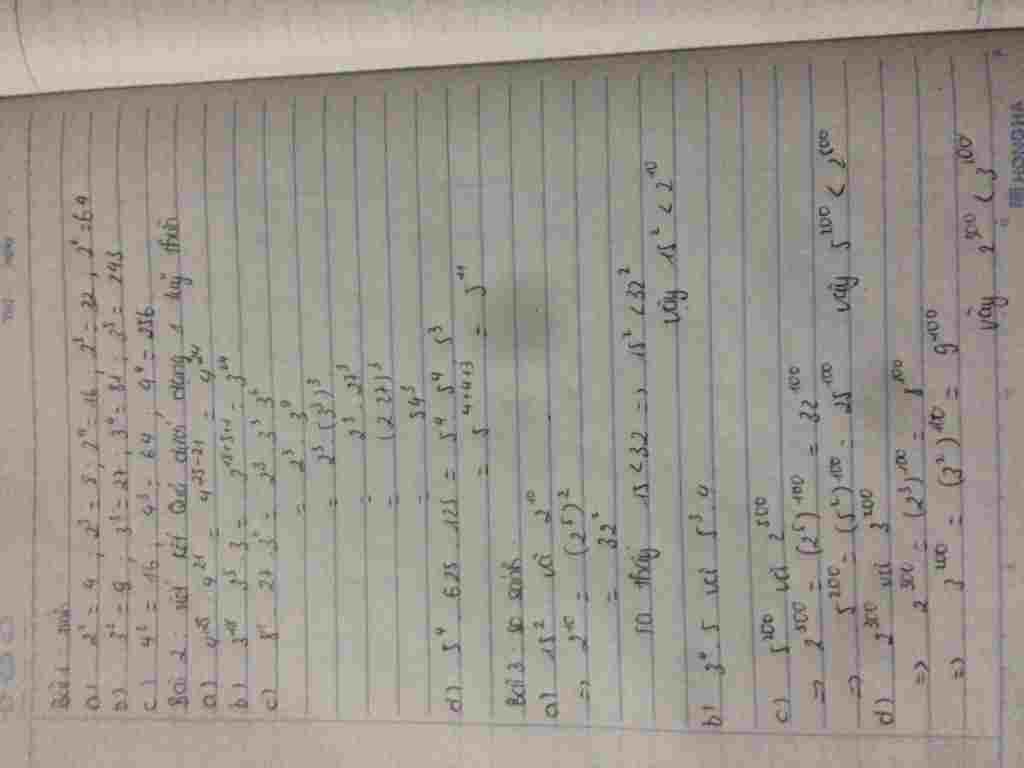 Bài 1 tính
a) 2² = 4 , 2³ = 8 , 2⁴ = 16 , 2⁵ = 32 , 2⁶ = 64
b) 3² = 9 , 3³ = 27 , 3⁴ = 81 , 3⁵ = 243
c) 4² = 16 , 4³ = 64 , 4⁴ = 256
Bài 2 : viết kết quả dưới dạng 1 luỹ thừa
a) 4²¹ = = 4²⁴
b) 3¹⁸ 3⁵ 3 = 3¹⁸⁺⁵⁺¹ = 3²⁴
c) 27 =
= 2³ 3⁹
= 2³ (3³)³
= 2³ . 27³
= (2 27)³
= 54³
d) 5⁴ 625 125 = 5⁴ 5⁴ 5³
= 5⁴⁺⁴⁺³ = 5¹¹
Bài 3 : so sánh
a) 15² và 2¹⁰
=> 2¹⁰ = (2⁵)²
= 32²
ta thấy 15 < 32 => 15² < 32²
Vậy 15² < 2¹⁰
b) 3⁴ . 5 với 5³ . 4
c) 5²⁰⁰ với 2⁵⁰⁰
=> 2⁵⁰⁰ = (2⁵)¹⁰⁰ = 32¹⁰⁰
=> 5²⁰⁰ = (5²)¹⁰⁰ = 25¹⁰⁰ Vậy 5²⁰⁰ < 2⁵⁰⁰
d) 2³⁰⁰ với 3²⁰⁰
=> 2³⁰⁰ = (2³)¹⁰⁰ = 8¹⁰⁰
=> 3²⁰⁰ = (3²)¹⁰⁰ = 9¹⁰⁰
Vậy 2³⁰⁰ < 3¹⁰⁰
HONG HA